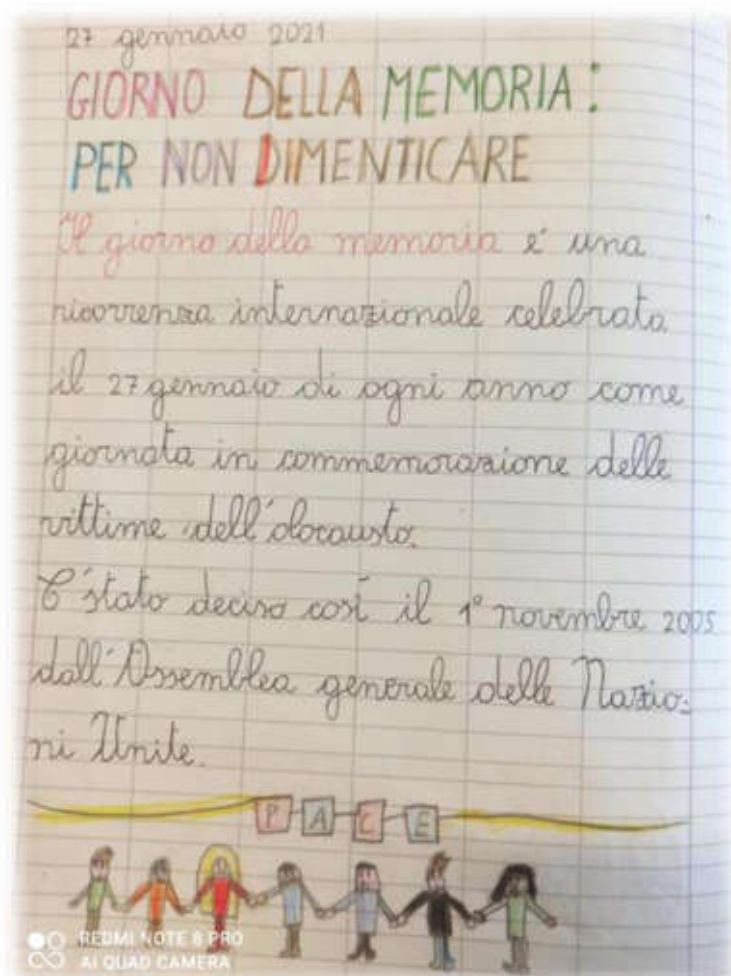 27 gennaio 2021
GIORNO DELLA MEMORIA:
PER NON DIMENTICARE
Il giorno della memoria é una
ricorrenza internazionale celebrata
il 27 gennaio di ogni anno come
giornata in commemorazione delle
vittime dell'olocausto.
E' stato deciso così il 1° novembre 2005
dall'Assemblea generale delle Nazio=
ni Unite.
P A C E
REDMI NOTE 8 PRO
AI QUAD CAMERA